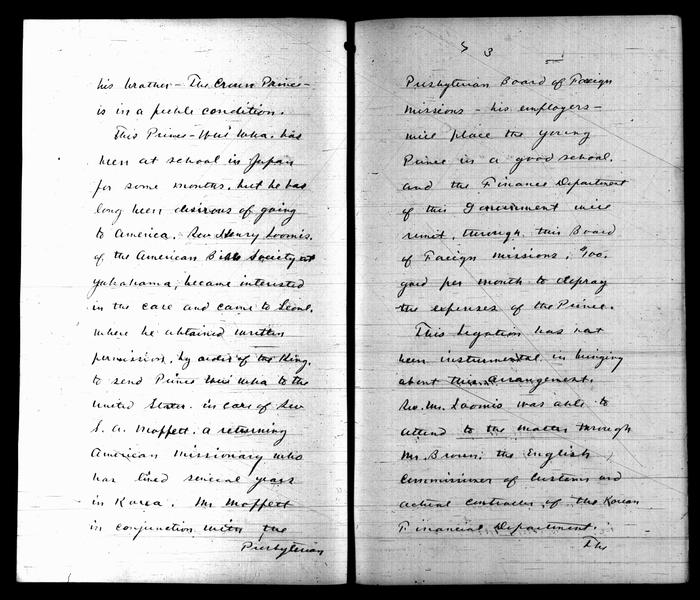 his brother - The Crown Prince -
is in a feeble condition.
This Prince - Wui Wha. has
been at school in Japan
for some months. but he has
long been desirous of going
to America. Rev. Henry Loomis.
of the American Bible Society at
Yokohama, became interested
in the case and came to Seoul.
where he obtained written
permission. by order of the King.
to send Prince Wui Wha to the
United States. in care of Rev
S. A. Moffett. a returning
American Missionary who
has lived several years
in Korea. Mr Moffett
in conjunction with the
Presbyterian
3
Presbyterian Board of Foreign
Missions - his employers -
will place the young
Prince in a good school.
and the Finance Department
of this Government will
remit, through this Board
of Foreign missions, $900.
gold per month to defray
the expenses of the Prince.
This Legation has not
been instrumental in bringing
about this arrangement.
Rev. Mr. Loomis was able to
attend to the matter through
Mr. Brown, the English
Commissioner of Customs and
actual controller of the Korean
Financial Department.
The